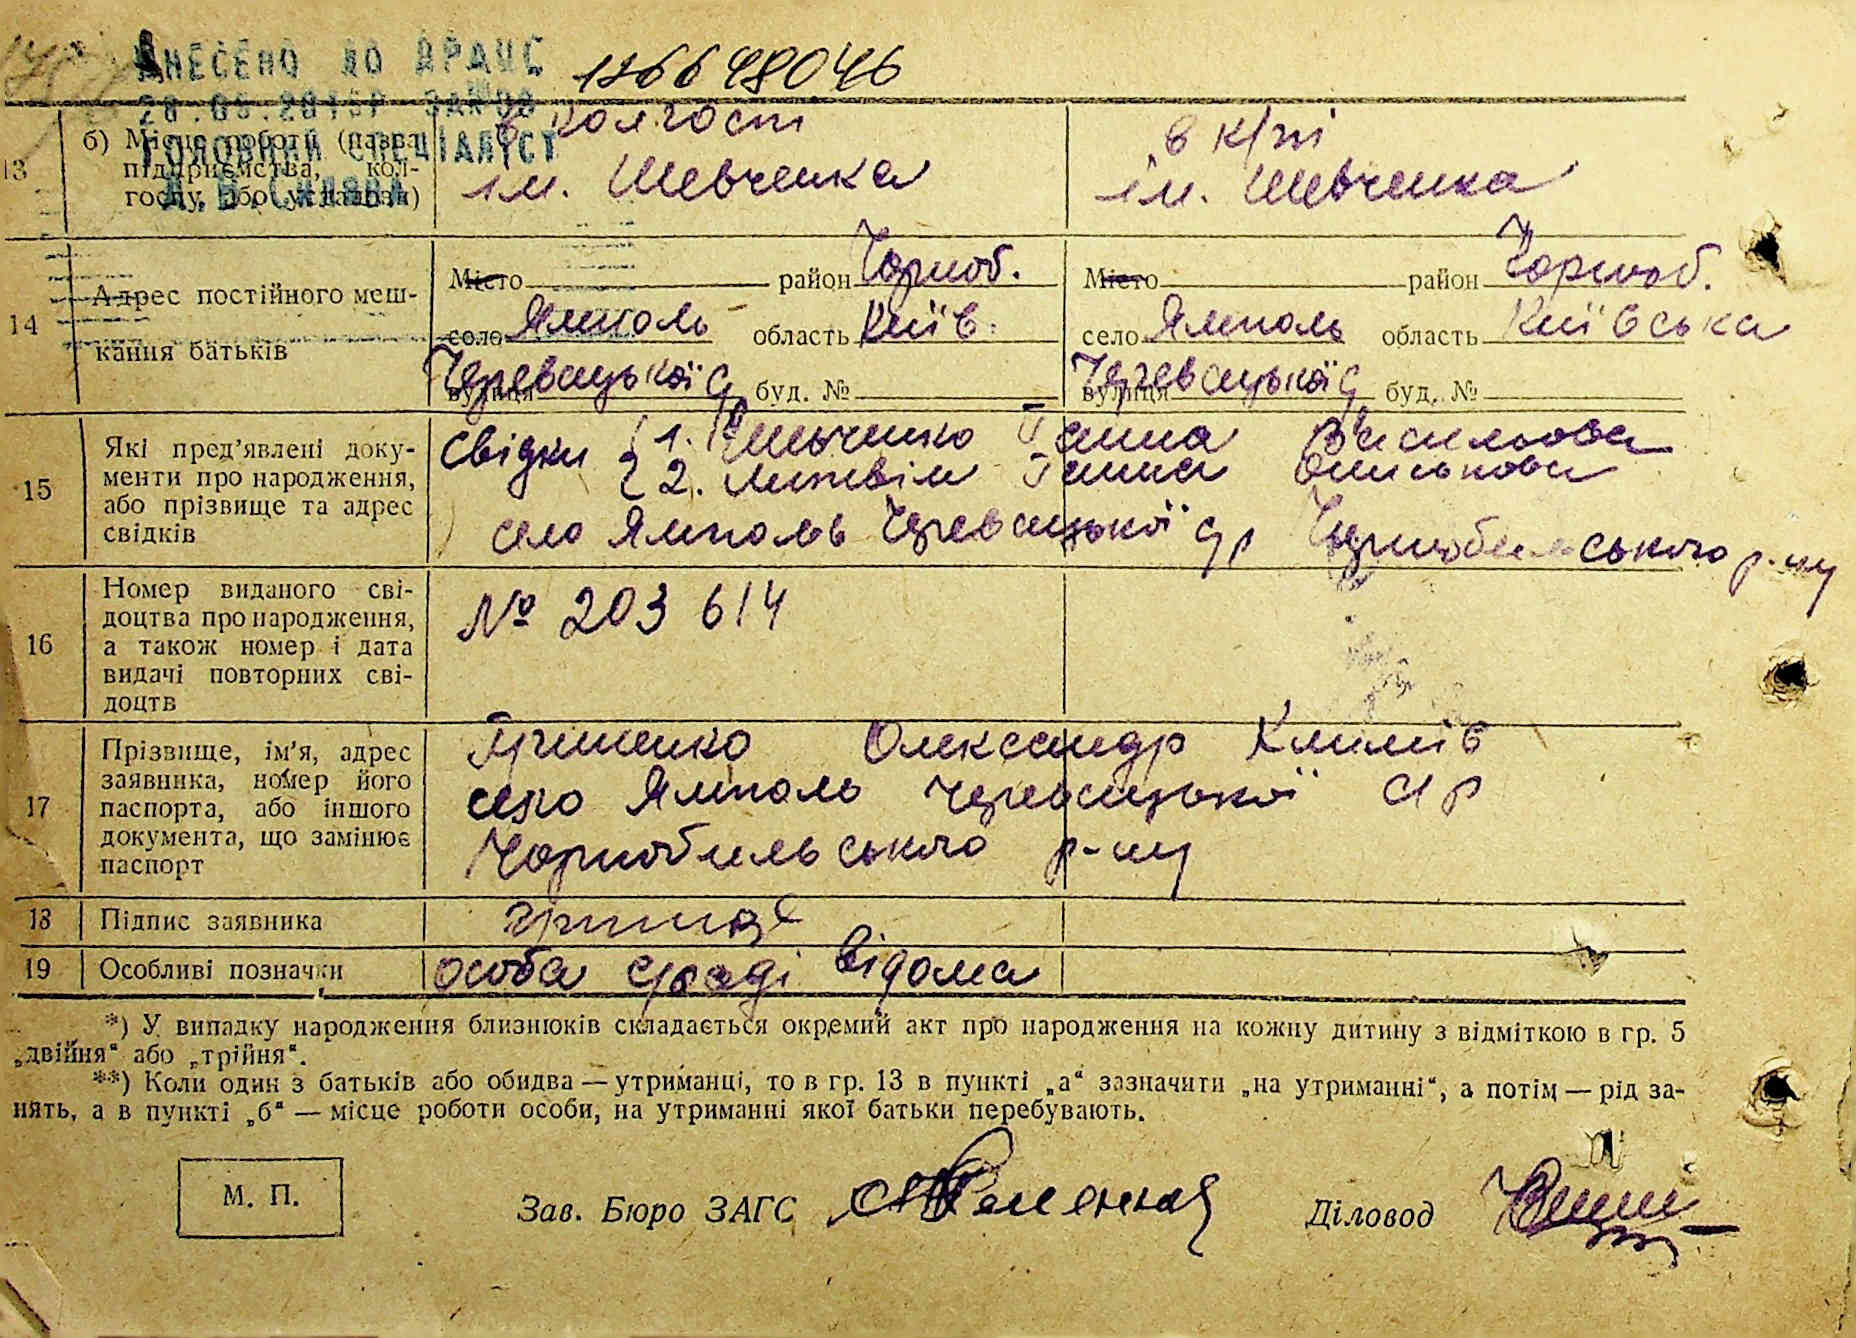 ВНЕСЕНО ДО ДРАЦС 126648046
ГОЛОВНИЙ СПЕЦІАЛІСТ
13 б) Місце роботи (назва підприємства, кол-
госпу, або установи)
в колгоспі
ім. Шевченка
в к/гпі
ім. Шевченка
14 Адрес постійного меш-
кання батьків
Місто район Чорноб.
село Ямполь область Київ.
вулиця Черевацької с/р буд. №
Місто район Чорноб.
село Ямполь область Київська
вулиця Черевацької с/р буд. №
15 Які пред'явлені доку-
менти про народження,
або прізвище та адрес
свідків
Свідки 1. Ганна Васильовна
2. Литвін Ганна
село Ямполь Черевацької с/р Чорнобильського р-ну
16 Номер виданого сві-
доцтва про народження,
а також номер і дата
видачі повторних сві-
доцтв
№ 203614
17 Прізвище, ім'я, адрес
заявника, номер його
паспорта, або іншого
документа, що замінює
паспорт
Гриненко Олександр Климів
село Ямполь Черевацької с/р
Чорнобильського р-ну
18 Підпис заявника
19 Особливі позначки особа с/раді відома
*) У випадку народження близнюків складається окремий акт про народження на кожну дитину з відміткою в гр. 5
„двійня“ або „трійня“.
**) Коли один з батьків або обидва — утриманці, то в гр. 13 в пункті „а“ зазначити „на утриманні“, а потім — рід за-
нять, а в пункті „б“ — місце роботи особи, на утриманні якої батьки перебувають.
М. П. Зав. Бюро ЗАГС Діловод